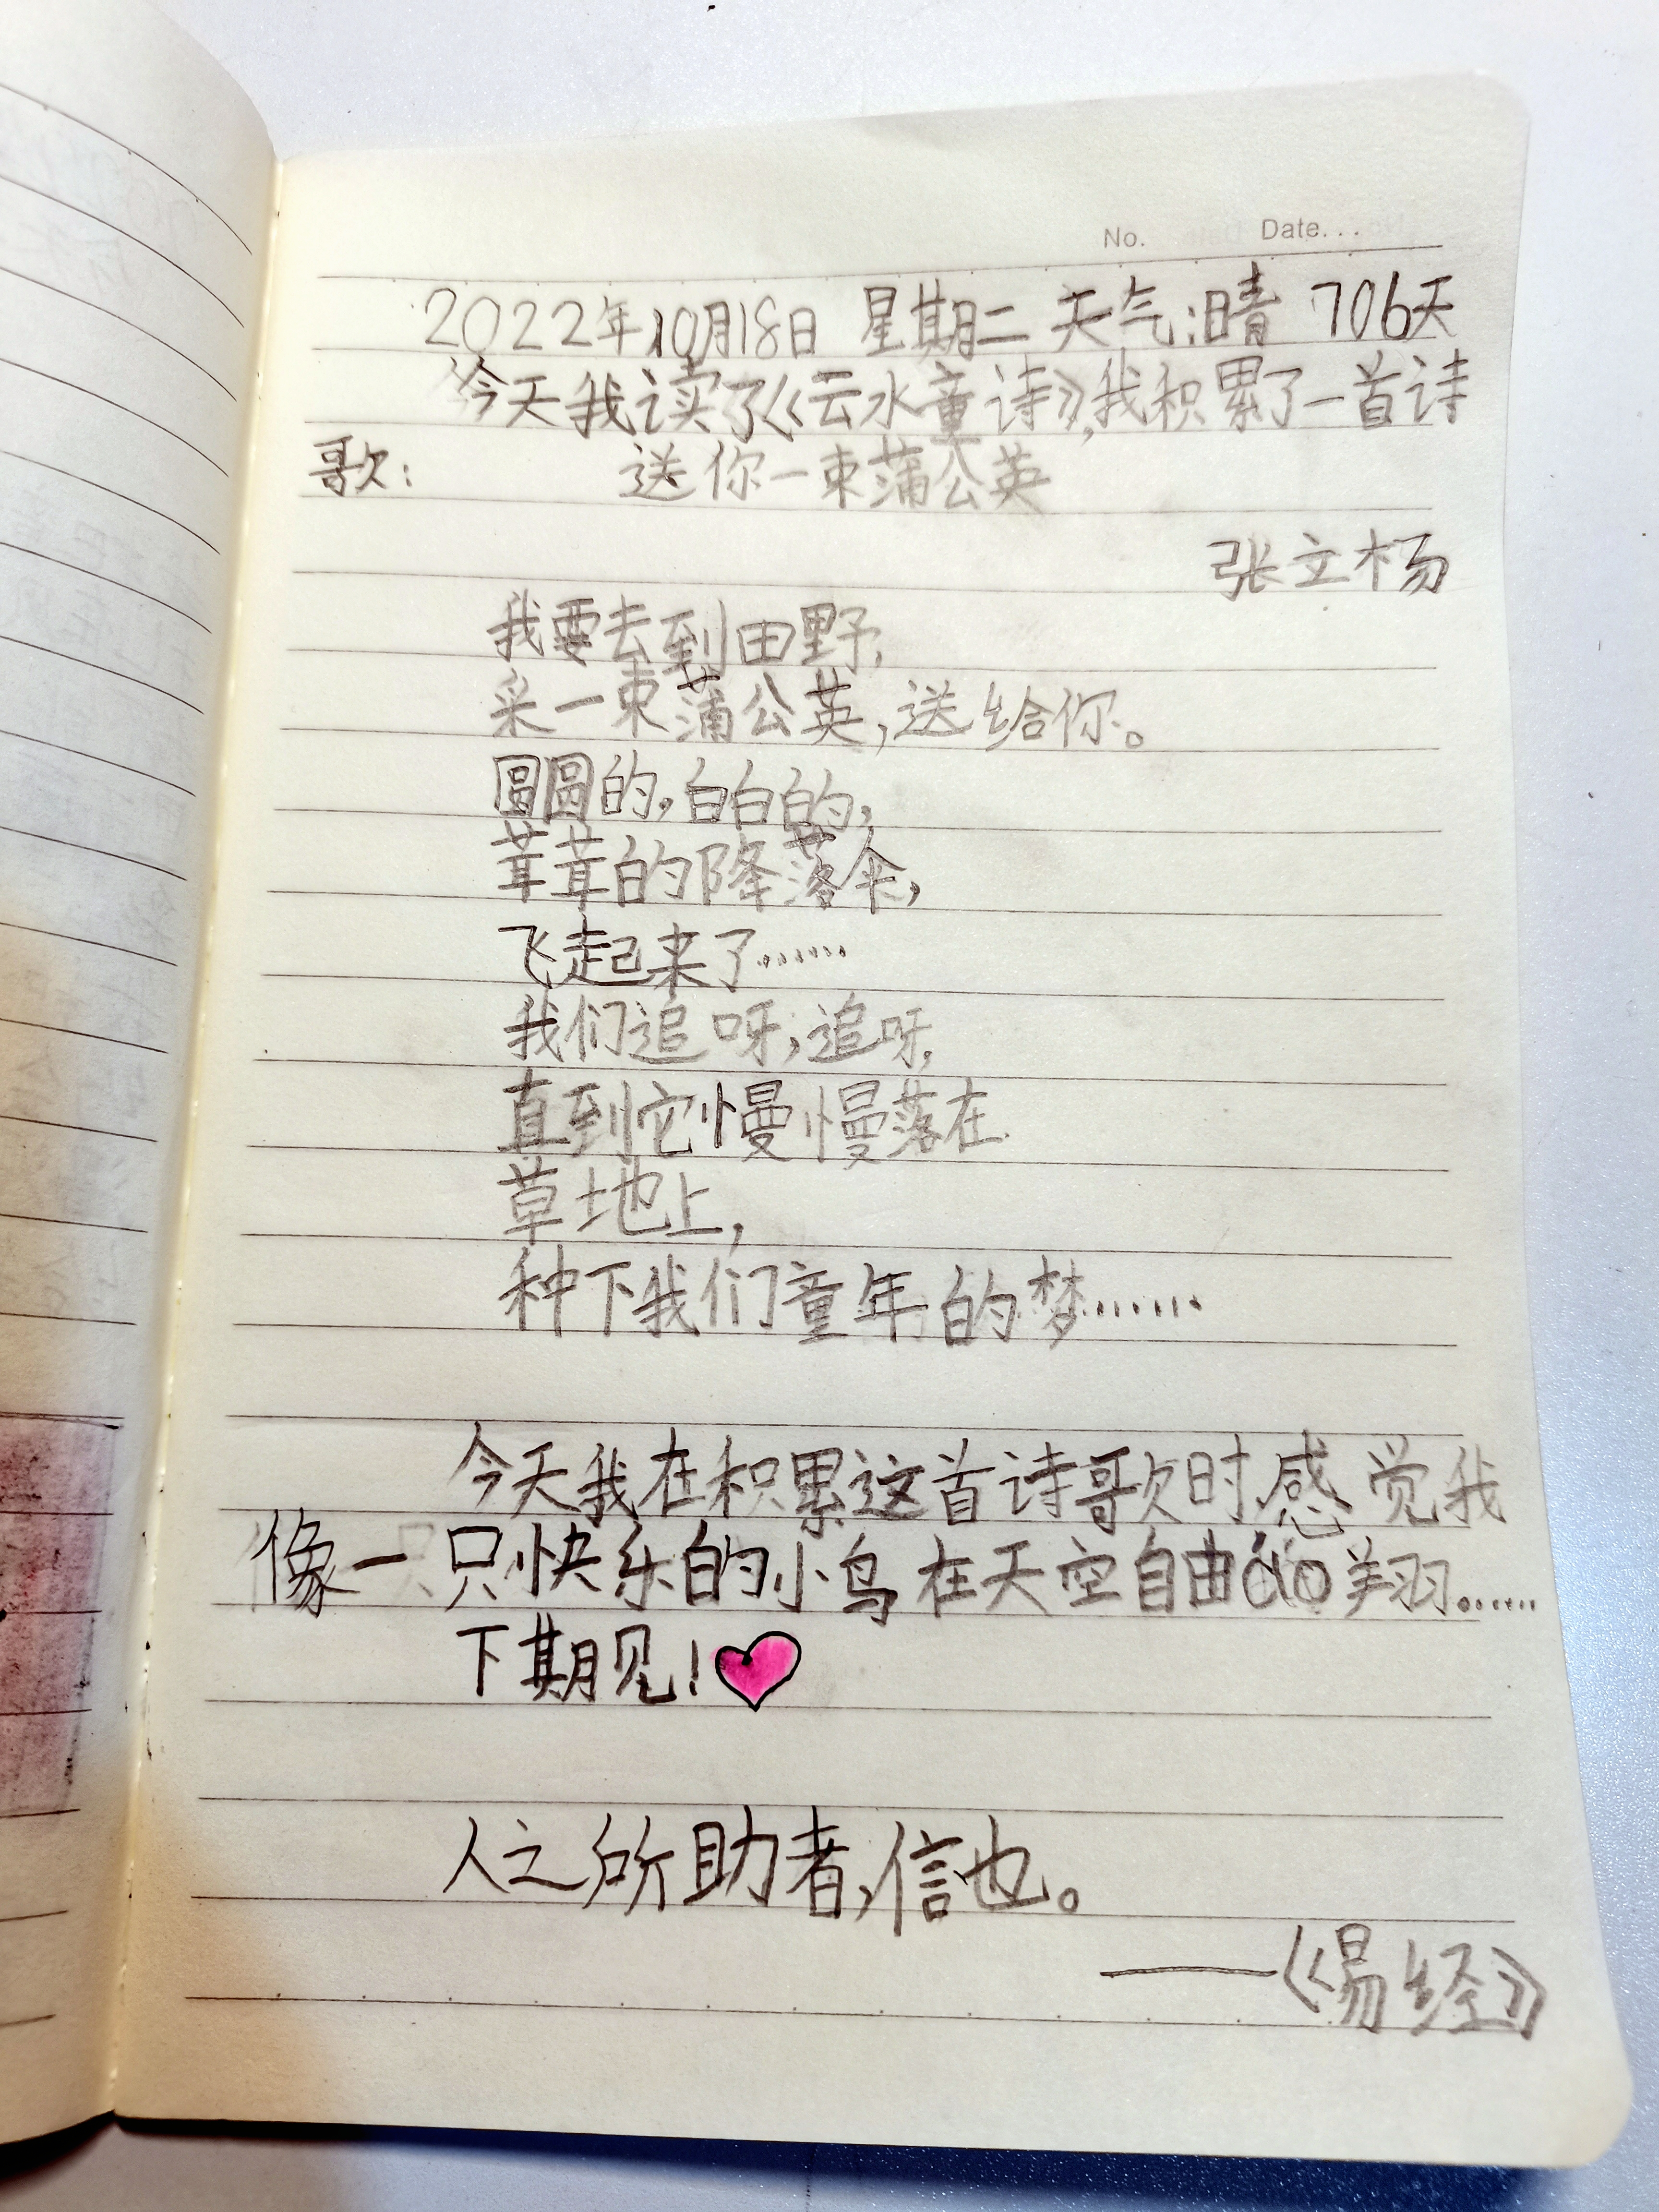 No. Date...
2022年10月18日 星期二 天气:晴 706天
今天我读了《云水童诗》,我积累了一首诗
歌: 送你一束蒲公英
张文杨
我要去到田野,
采一束蒲公英,送给你。
圆圆的,白白的,
茸茸的降落伞,
飞起来了……
我们追呀,追呀,
直到它慢慢落在
草地上,
种下我们童年的梦……
今天我在积累这首诗歌时,感觉我
像一只快乐的小鸟在天空自由áo翔……
下期见!
人之所助者,信也。
——《易经》